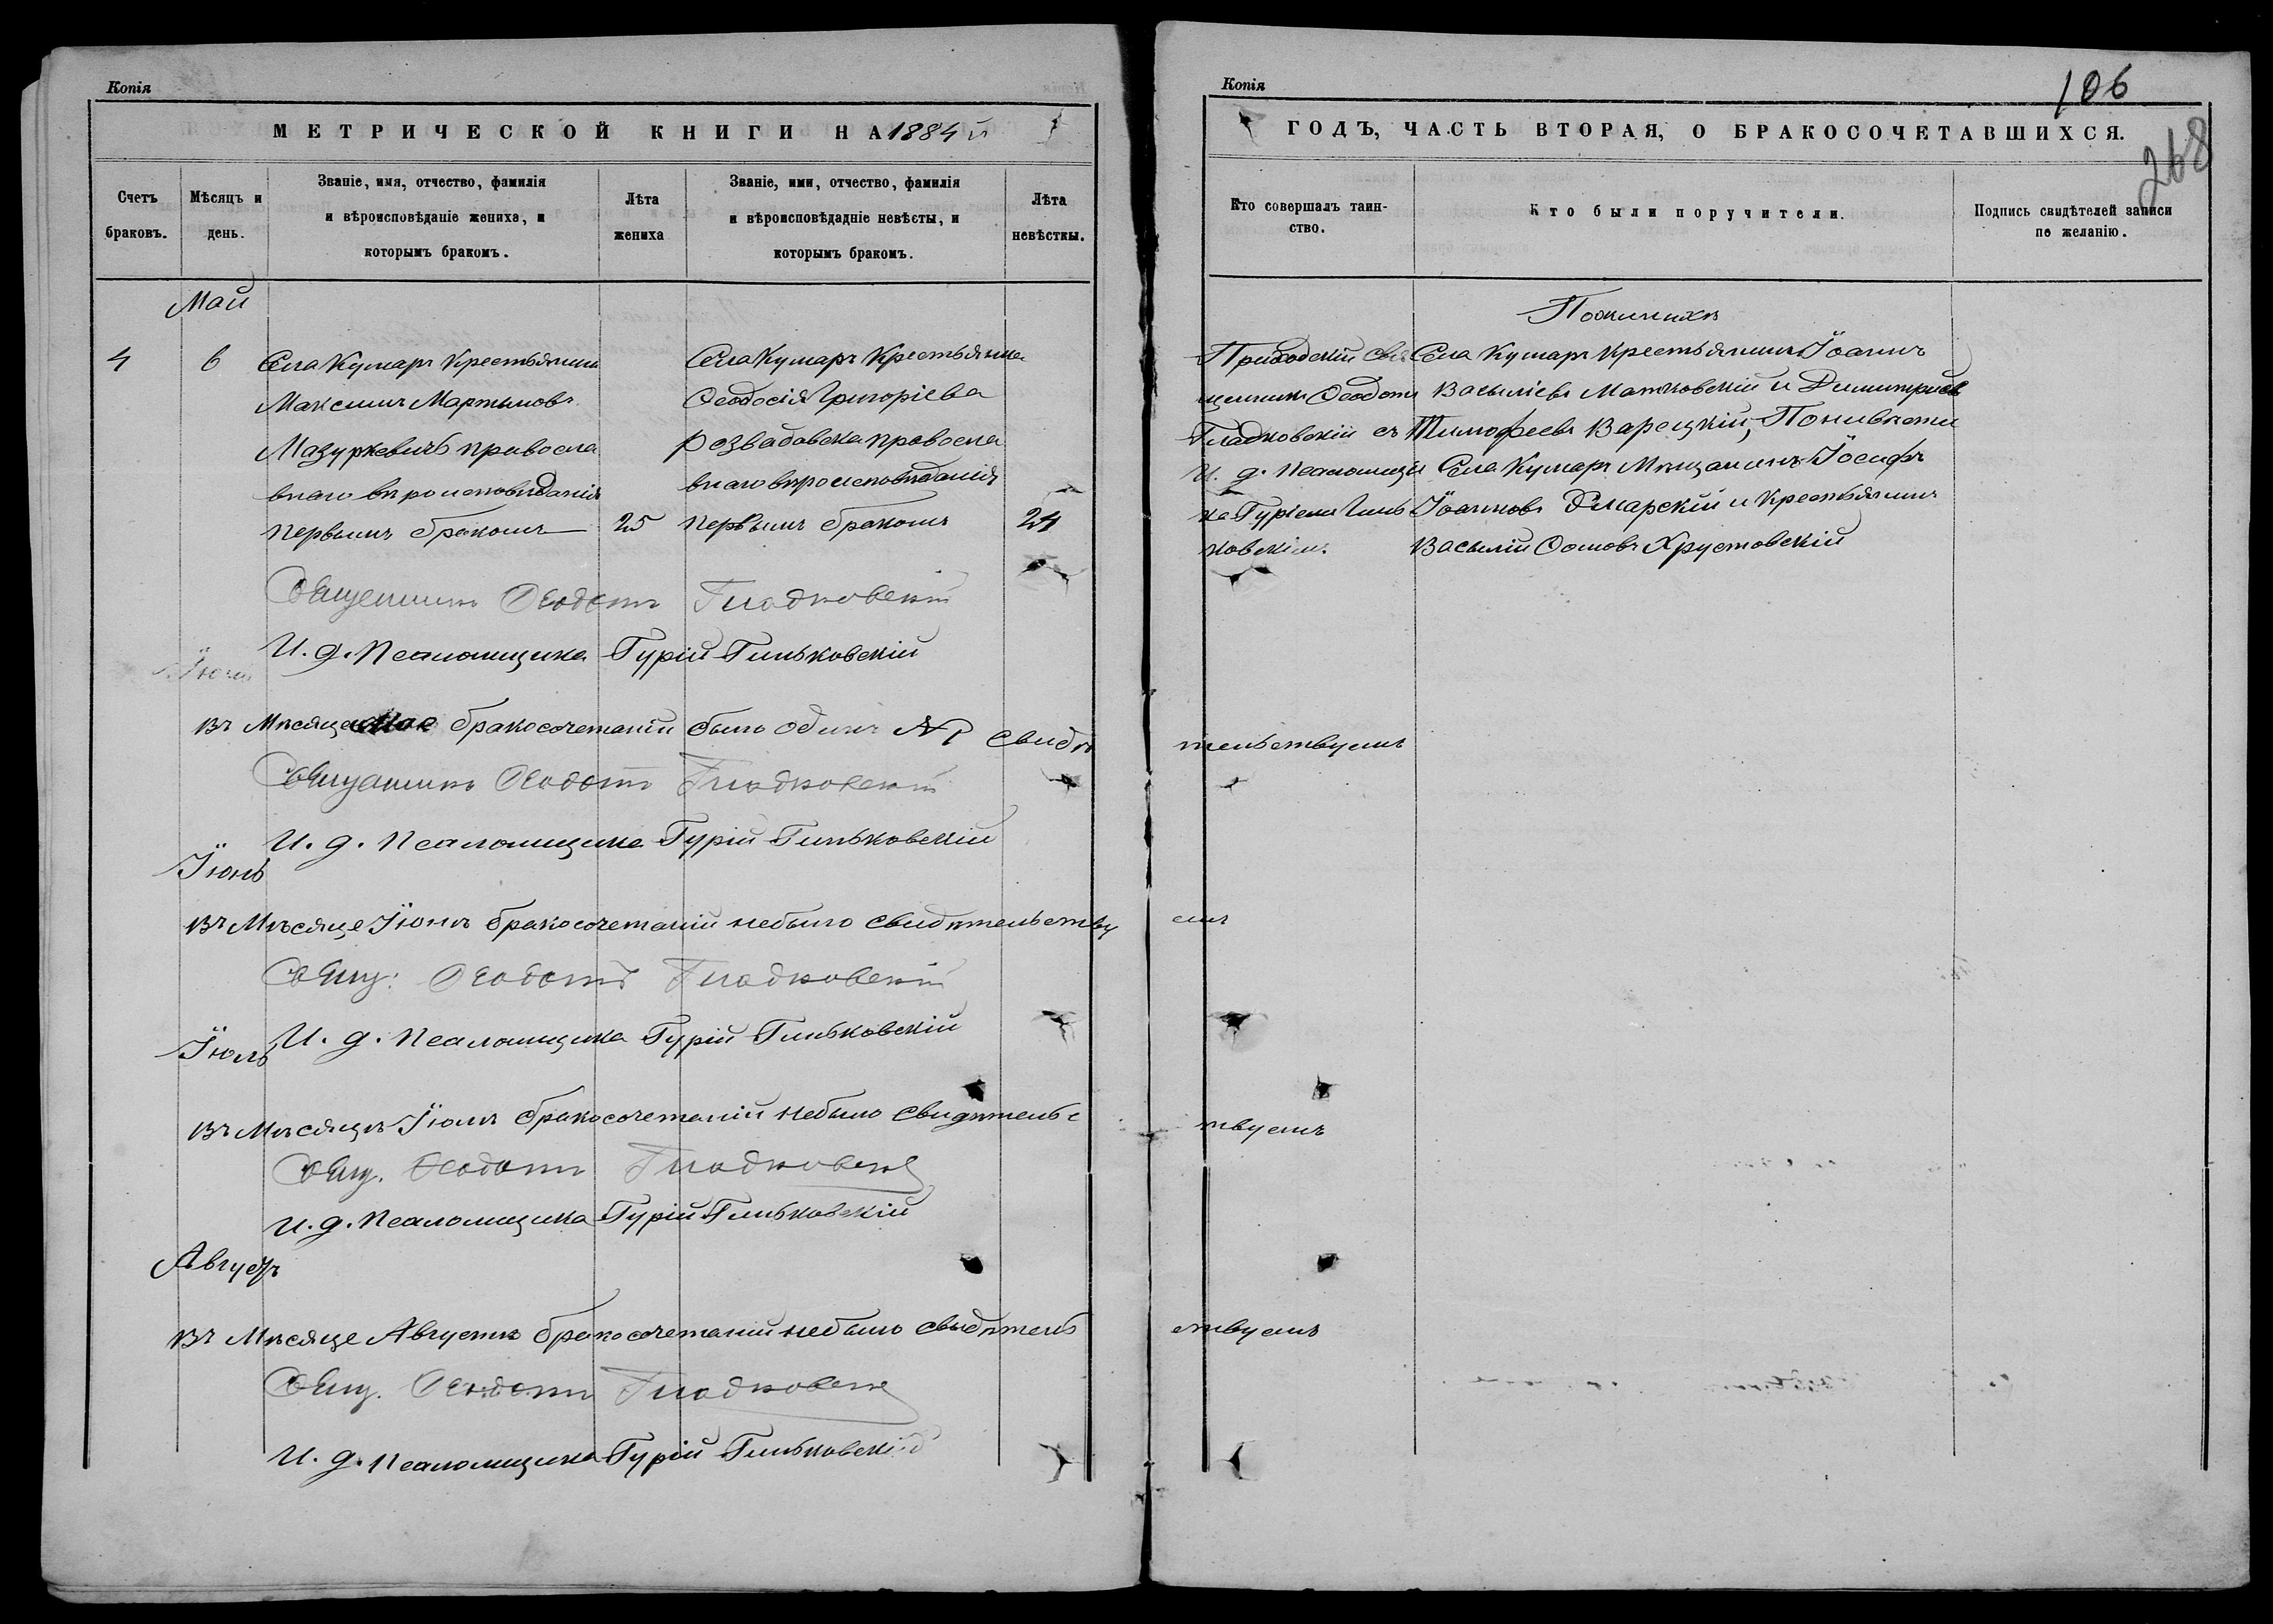 Копія
МЕТРИЧЕСКОЙ КНИГИ НА 1884 й
Счетъ браковъ.
Мѣсяцъ и день.
Званіе, имя, отчество, фамилія и вѣроисповѣданіе жениха, и которымъ бракомъ.
Лѣта жениха
Званіе, ими, отчество, фамилія и вѣроисповѣдадніе невѣсты, и которымъ бракомъ.
Лѣта невѣсткы.
Май
4
6
Села Кумаръ Крестьянинъ
Максимъ Мартыновъ
Мазуркевичъ правосла
внаго вѣроисповѣданія
первымъ бракомъ
25
Села Кумаръ Крестьянка
Ѳеодосія Григоріева
Розвадовска правосла
внаго вѣроисповѣданія
первымъ бракомъ
24
Священникъ Ѳеодотъ Гладковскій
И. д. Псаломщика Гурій Гиньковскій
Іюнь
Въ Мѣсяце Мае бракосочетаній было одинъ № 1 свидѣ
тельствуемъ
Священникъ Ѳеодотъ Гладковскій
И. д. Псаломщика Гурій Гиньковскій
Іюнь
Въ Мѣсяце Іюнѣ бракосочетаній небыло свидѣтельству
емъ
Свящ: Ѳеодотъ Гладковскій
И. д. Псаломщика Гурій Гиньковскій
Іюль
Въ Мѣсяцѣ Іюлѣ бракосочетаній небыло свидѣтельс
твуемъ
Свящ. Ѳеодотъ Гладковскій
И. д. Псаломщика Гурій Гиньковскій
Августъ
Въ Мѣсяце Августѣ бракосочетаній небыло свидѣтель
ствуемъ
Свящ. Ѳеодотъ Гладковскій
И. д. Псаломщика Гурій Гиньковскій
Копія
106
268
ГОДЪ, ЧАСТЬ ВТОРАЯ, О БРАКОСОЧЕТАВШИХСЯ.
Кто совершалъ таин-
ство.
Кто были поручители.
Подпись свидѣтелей записи
по желанію.
Приходскій Свя
щенникъ Ѳеодотъ
Гладковскій съ
И. д. Псаломщи
ка Гуріемъ Гинь
ковскимъ
Поженихѣ
Села Кумаръ Крестьянинъ Іоаннъ
Васыліевъ Матковскій и Димитрій
Тимофеевъ Варецкій, Поневѣсти
Села Кумаръ Мѣщанинъ Іосифъ
Іоанновъ и Крестьянинъ
Васылій Ѳомовъ Хрустовскій